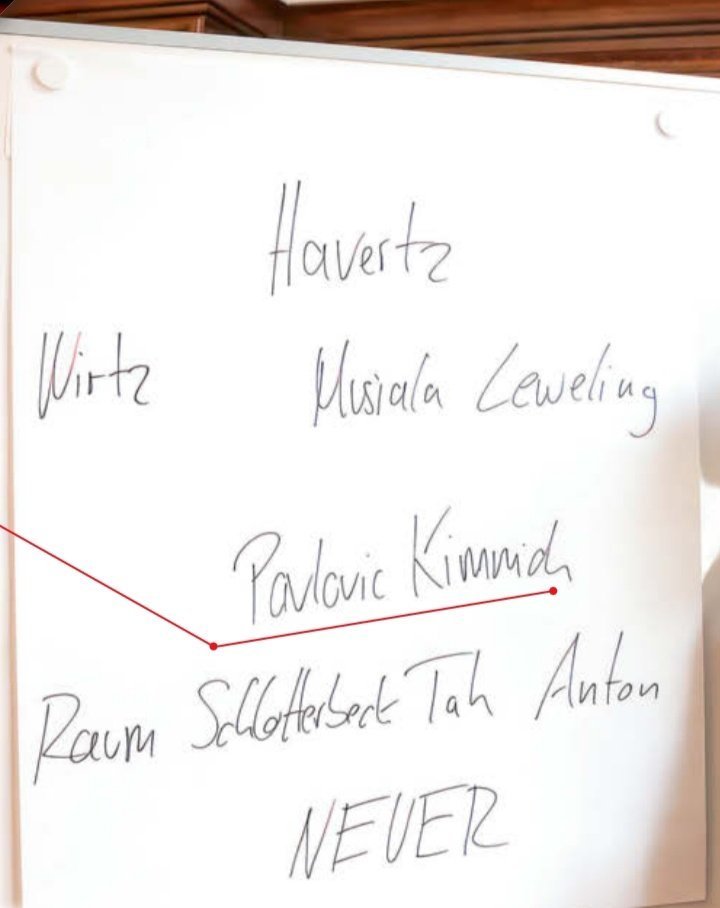 Havertz
Wirtz Musiala Leweling
Pavlovic Kimmich
Raum Schlotterbeck Tah Anton
NEUER